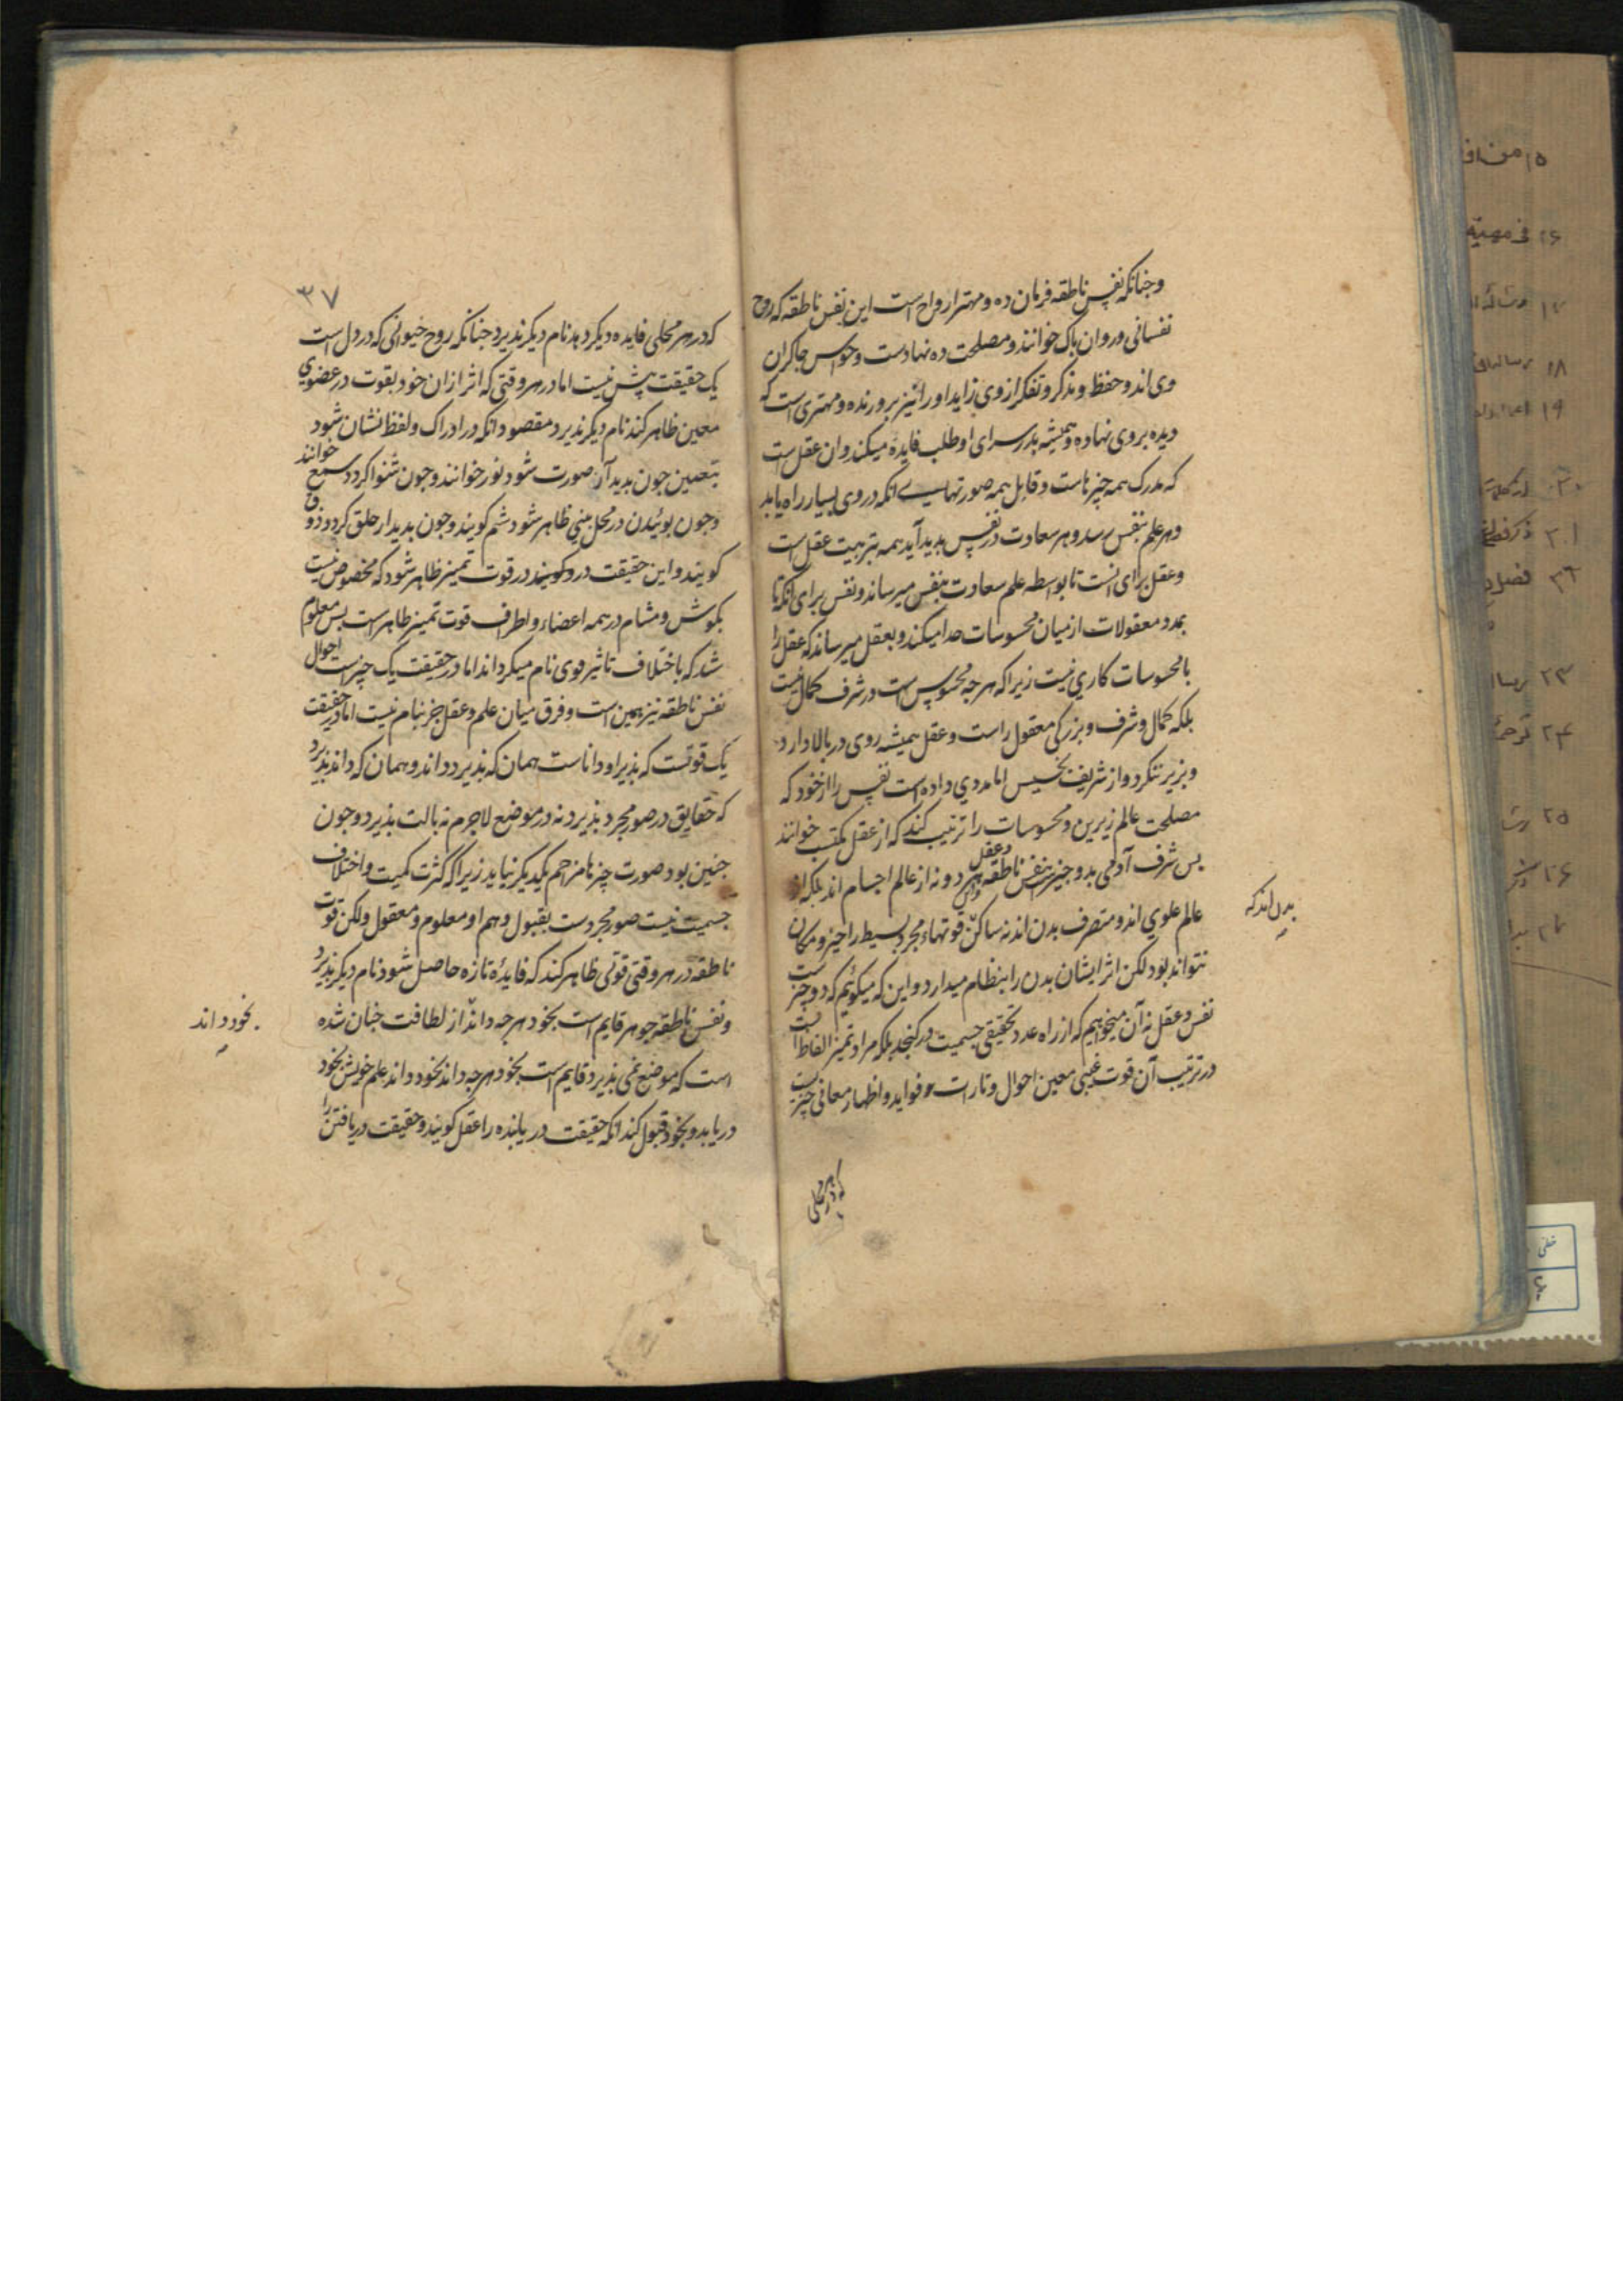 وجنانکه نفس ناطقه فرمان ده و مهتر ارواح است این نفس ناطقه که روح
نفسانی و روان باک خوانند و مصلحت ده نهادست و حواس جاکران
وی اند و حفظ و تذکر و تفکر از وی زاید او را نیز برورنده و مهتری است که
دیده بروی نهاده و همیشه بدر سرای او طلب فایده میکند و ان عقل است
که مدرک همه چیزهاست و قابل همه صورتهاست بی انکه در وی بسیار راه یابد
و هر علم بنفس رسد و هر سعادت در نفس بدید آید همه بتربیت عقل است
و عقل برای انست تا بواسطه علم سعادت بنفس میرساند و نفس برای انکه تا
بمدد معقولات از میان محسوسات جدا میکند و بعقل میرساند که عقل را
با محسوسات کاری نیست زیرا که هر جه محسوس است در شرف کمال نیست
بلکه کمال و شرف و بزرکی معقول راست و عقل همیشه روی در بالا دارد
و بزیر ننکرد و از شریف بخسیس اما مددی داده است نفس را از خود که
مصلحت عالم زیرین و محسوسات را ترتیب کند که از عقل مکتسب خوانند
بس شرف آدمی بدو چیزست بنفس ناطقه و عقل و این هر دو نه از عالم اجسام اند بلکه از
عالم علوی اند و متصرف بدن اند نه ساکن قوتهاء مجرد بسیط را حیز و مکان
بدن اند که
نتواند بود لکن اثر ایشان بدن را بنظام میدارد و این که میکوئیم که دو چیزست
نفس و عقل نه آن میخواهیم که از راه عدد تحقیقی جسمیت در کنجد بلکه مراد تمیز الفاظ است
در ترتیب آن قوت غیبی معین احوال و تارات و فواید و اظهار معانی چیزیست
که در هر محلی
۳۷
که در هر محلی فایده دیکر دهد نام دیکر بذیرد جنانکه روح حیوانی که در دل است
یک حقیقت بیش نیست اما در هر وقتی که اثر از ان خود بقوت در عضوی
معین ظاهر کند نام دیکر بذیرد مقصود انکه در ادراک و لفظ نشان شود
بتعیین جون بدید آرد صورت شود نور خوانند و جون شنوا کردد سمع خوانند
و جون بوئیدن در محل بینی ظاهر شود شم کویند و جون بدیدار حلق کردد ذوق
کویند و این حقیقت در و کویند در قوت تمیز ظاهر شود که مخصوص نیست
بکوش و مشام در همه اعضاء و اطراف قوت تمیز ظاهر است بس معلوم
شد که باختلاف تاثیر قوی نام میکرداند اما در حقیقت یک چیز است احوال
نفس ناطقه نیز همین است و فرق میان علم و عقل جز بنام نیست اما در حقیقت
یک قوتست که بذیرا و داناست همان که بذیرد داند و همان که داند بذیرد
که حقایق در صور مجرد بذیرد نه در موضع لاجرم نه بالت بذیرد و جون
جنین بود صورت چیزها مزاحم یکدیکر نیاید زیرا که کثرت کمیت و اختلاف
جسمیت نیست صور مجردست بقبول و هم او معلوم و معقول ولکن قوت
ناطقه در هر وقتی قوتی ظاهر کند که فایدهٔ تازه حاصل شود نام دیکر بذیرد
و نفس ناطقه جوهر قایم است بخود هر جه داند از لطافت جنان شده
بخود داند
است که موضع نمی بذیرد قایم است بخود هر جه داند بخود داند علم خویش بخود
دریابد و بخود قبول کند انکه حقیقت دریابنده را عقل کویند و حقیقت دریافتن را